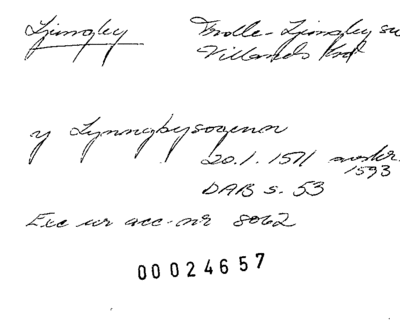 Ljungby Trolle-Ljungby sn
Villands hd
y Lynngbysogenn
20.1.1511 avskr.
1593
DAB s. 53
Exc ur acc.nr 8062
00024657